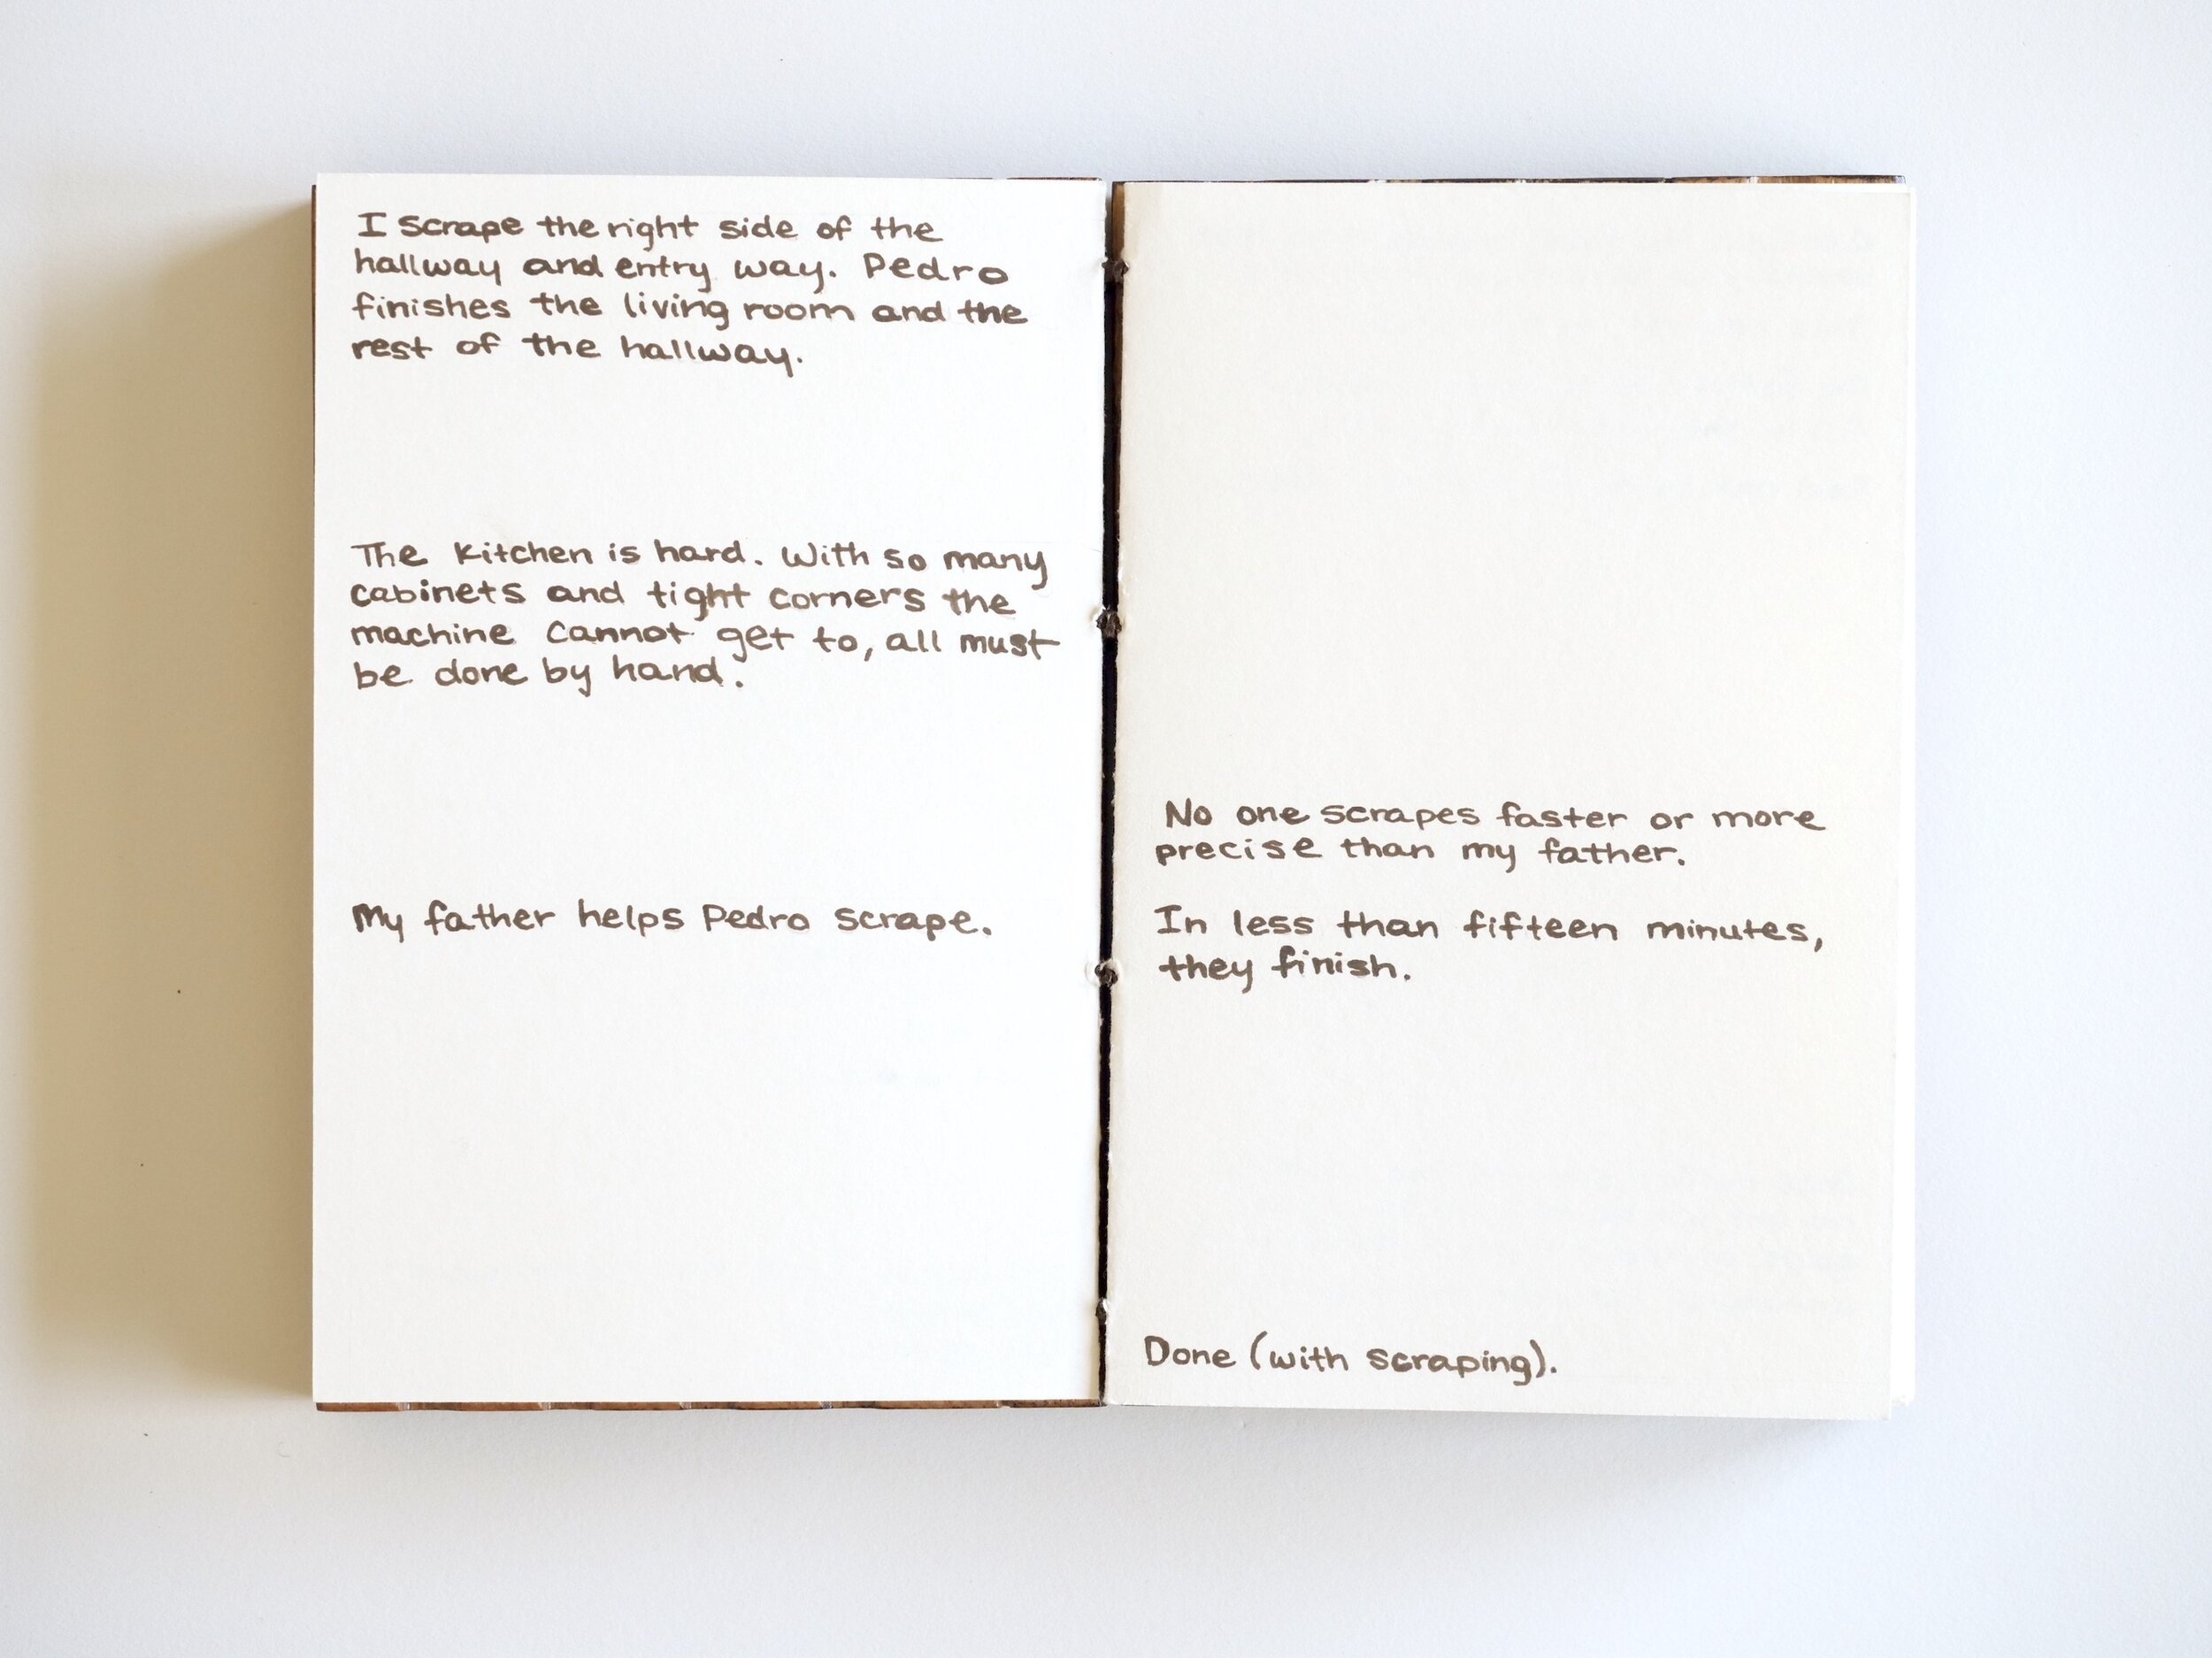 I scrape the right side of the
hallway and entry way. Pedro
finishes the living room and the
rest of the hallway.
The kitchen is hard. With so many
cabinets and tight corners the
machine cannot get to, all must
be done by hand.
My father helps Pedro scrape.
No one scrapes faster or more
precise than my father.
In less than fifteen minutes,
they finish.
Done (with scraping).